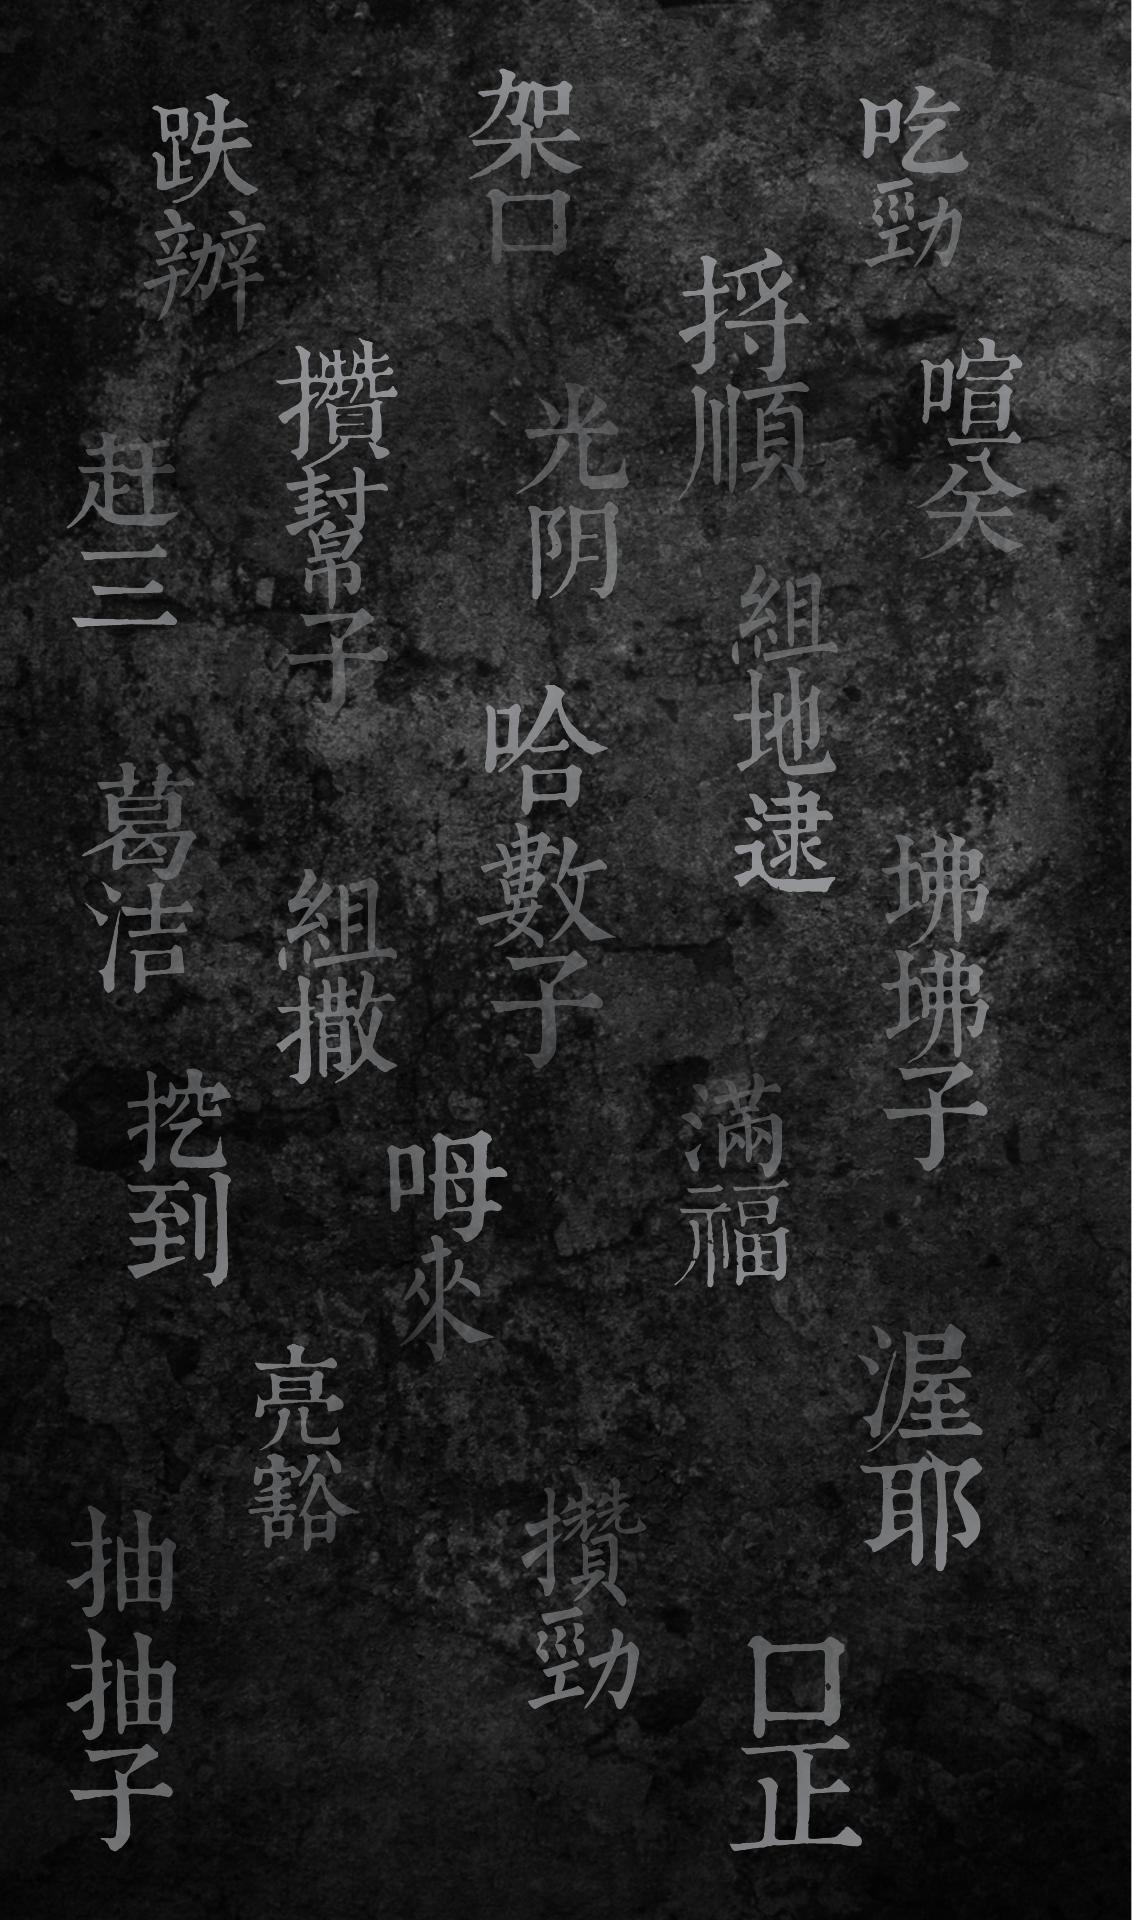 吃勁
喧矣
捋順
組地逮
坲坲子
架口
光阴
哈數子
滿福
渥耶
口正
跌辦
攢幫子
組撒
呣來
攢勁
赶三
葛洁
挖到
亮豁
抽抽子